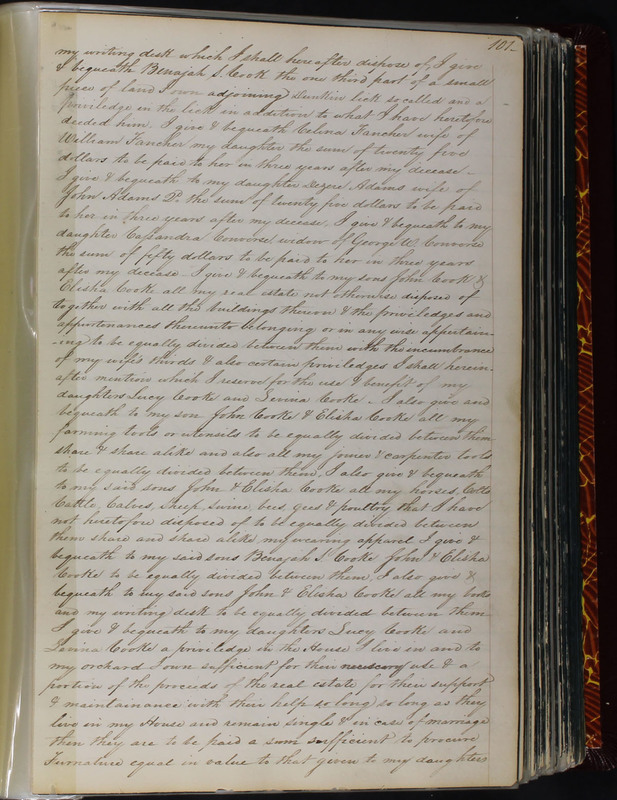 101-
my writing desk which I shall hereafter dispose of, I give
& bequeath Benajah S. Cook the one third part of a small
piece of land I own adjoining Dunkin lick so called and a
priviledge in the lick in addition to what I have heretofore
deeded him. I give & bequeath Celina Fancher wife of
William Fancher my daughter the sum of twenty five
dollars to be paid to her in three years after my decease -
I give & bequeath to my daughter Adams wife of
John Adams Do the sum of twenty five dollars to be paid
to her in three years after my decease, I give & bequeath to my
daughter Cassandra Converse widow of George W. Converse
the sum of fifty dollars to be paid to her in three years
after my decease. I give & bequeath to my sons John Cook &
Elisha Cook all my real estate not otherwise disposed of
together with all the buildings thereon & the priviledges and
appurtenances thereunto belonging or in any wise appertain-
-ing to be equally divided between them with the incumbrance
of my wifes thirds & also certain priviledges I shall herein-
after mention which I reserve for the use & benefit of my
daughters Lucy Cooke and Levina Cooke - I also give and
bequeath to my son John Cooke & Elisha Cooke all my
farming tools or utensils to be equally divided between them
share & share alike and also all my joiner & carpenter tools
to be equally divided between them. I also give & bequeath
to my said sons John & Elisha Cooke all my horses, Colts
Cattle, Calves, sheep, swine, bees, gees & poultry that I have
not heretofore disposed of to be equally divided between
them share and share alike, my wearing apparel I give &
bequeath to my said sons Benajah S. Cooke John & Elisha
Cooke to be equally divided between them, I also give &
bequeath to my said sons John & Elisha Cooke all my books
and my writing desk to be equally divided between them
I give & bequeath to my daughters Lucy Cooke and
Levina Cooke a priviledge in the House I live in and to
my orchard I own sufficient for their necessary use & a
portion of the proceeds of the real estate for their support
& maintainance with their help so long so long as they
live in my House and remain single & in case of marriage
then they are to be paid a sum sufficient to procure
Furnature equal in value to that given to my daughters